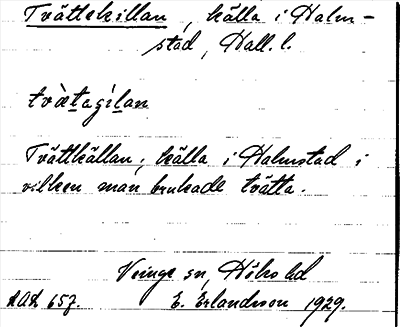 Tvättekillan, källa i Halm-
stad, Hall. l.
tvæ̀tagílan
Tvättkällan, källa i Halmstad i
vilken man brukade tvätta.
Veinge sn, Höks hd
AAL 657. E. Erlandsson 1929.